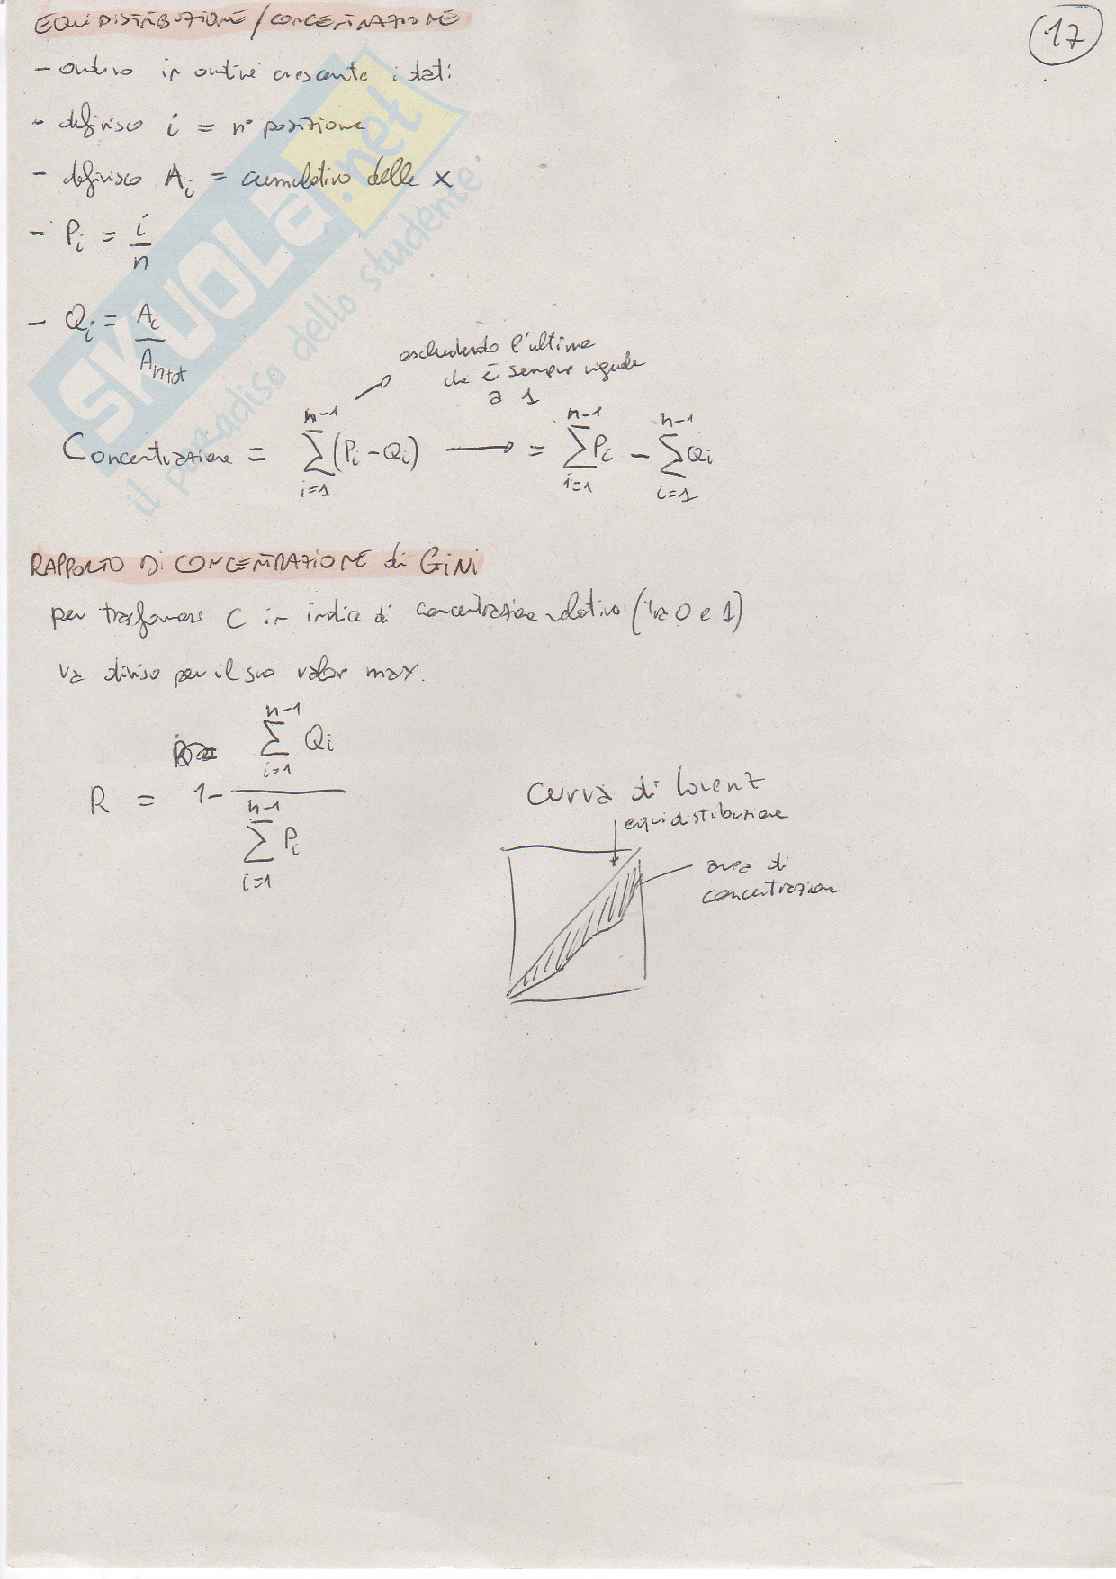 17
EQUIDISTRIBUZIONE / CONCENTRAZIONE
- ordino in ordine crescente i dati
- definisco i = n° posizione
- definisco Ai = cumulativo delle x
- Pi = i/n
- Qi = Ai/An tot
escludendo l'ultimo
che è sempre uguale
a 1
Concentrazione = ∑_{i=1}^{n-1} (Pi - Qi) → = ∑_{i=1}^{n-1} Pi - ∑_{i=1}^{n-1} Qi
RAPPORTO DI CONCENTRAZIONE di GINI
per trasformare C in indice di concentrazione relativo (tra 0 e 1)
va diviso per il suo valor max.
R = 1 - ∑_{i=1}^{n-1} Qi / ∑_{i=1}^{n-1} Pi
Curva di Lorenz
equidistribuzione
area di
concentrazione
SKUOLA.net
il paradiso dello studente